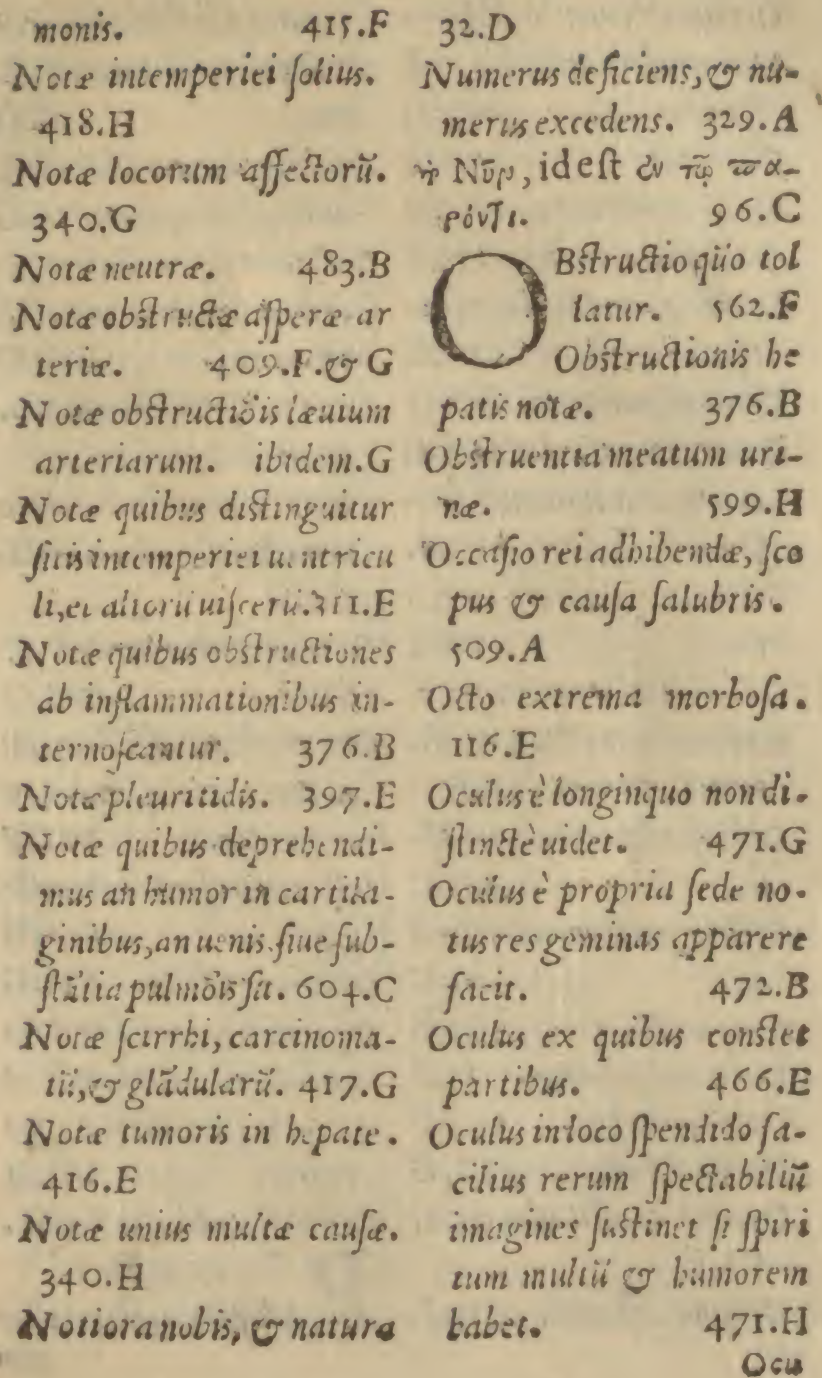 monis. 415.F
Notæ intemperiei ſolius.
418.H
Notæ locorum affectorũ.
340.G
Notæ neutræ. 483.B
Notæ obſtructæ aſperæ ar
teriæ. 409.F.& G
Notæ obſtructiõis læuium
arteriarum. ibidem.G
Notæ quibus diſtinguitur
ſitis intemperiei uentricu
li, et aliorũ uiſcerũ. 311.E
Notæ quibus obſtructiones
ab inflammationibus in-
ternoſcantur. 376.B
Notæ pleuritidis. 397.E
Notæ quibus deprehendi-
mus an humor in cartila-
ginibus, an uenis ſiue ſub-
ſtãtia pulmõis ſit. 604.C
Notæ ſcirrhi, carcinoma-
tũ, & glãdularũ. 417.G
Notæ tumoris in hepate.
416.E
Notæ unius multæ cauſæ.
340.H
Notiora nobis, & natura
32.D
Numerus deficiens, & nu-
merus excedens. 329.A
Νῦν, id eſt ἐν τῷ πα-
ρόντι. 96.C
OBſtructio quo tol
latur. 562.F
Obſtructionis he
patis notæ. 376.B
Obſtruentia meatum uri-
næ. 599.H
Occaſio rei adhibendæ, ſco
pus & cauſa ſalubris.
509.A
Octo extrema morboſa.
116.E
Oculus è longinquo non di-
ſtinctè uidet. 471.G
Oculus è propria ſede mo-
tus res geminas apparere
facit. 472.B
Oculus ex quibus conſtet
partibus. 466.E
Oculus in loco ſpendido fa-
cilius rerum ſpectabiliũ
imagines ſuſtinet ſi ſpiri
tum multũ & humorem
habet. 471.H
Ocu